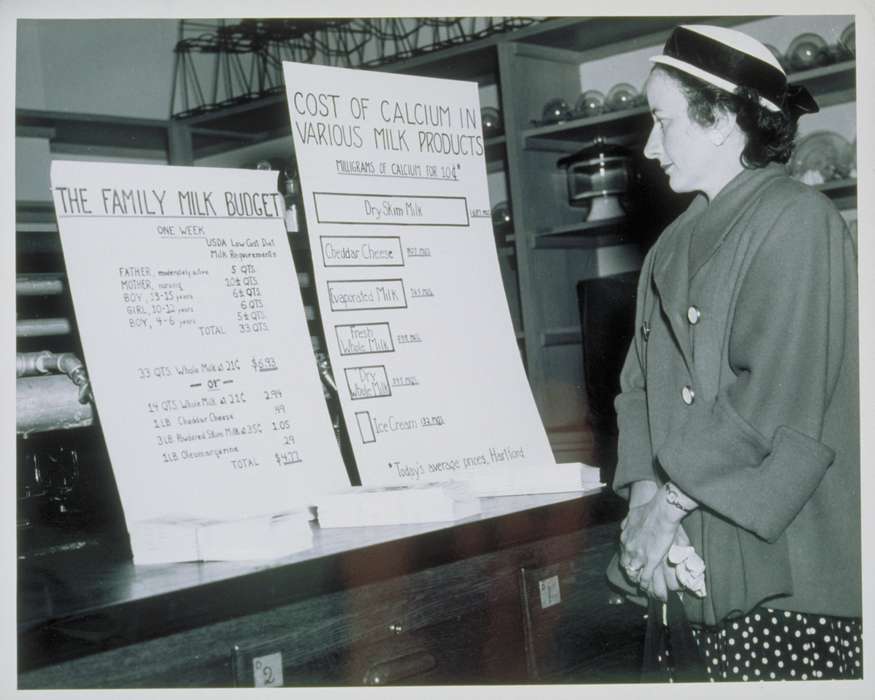 THE FAMILY MILK BUDGET
ONE WEEK
USDA Low Cost Diet
Milk Requirements
FATHER, moderately active 5 QTS.
MOTHER, nursing 10½ QTS.
BOY, 13-15 years 6½ QTS.
GIRL, 10-12 years 6 QTS.
BOY, 4-6 years 5½ QTS.
TOTAL 33 QTS.
33 QTS. Whole Milk at 21¢ $6.93
— or —
14 QTS. Whole Milk at 21¢ 2.94
1 LB Cheddar Cheese 49
3 LB Powdered Skim Milk at 35¢ 1.05
1 LB Oleomargarine 29
TOTAL $4.77
COST OF CALCIUM IN
VARIOUS MILK PRODUCTS
MILLIGRAMS OF CALCIUM FOR 10¢*
Dry Skim Milk
Cheddar Cheese
Evaporated Milk
Fresh
Whole Milk
Dry
Whole Milk
Ice Cream
*Today's average prices, Hartford
2